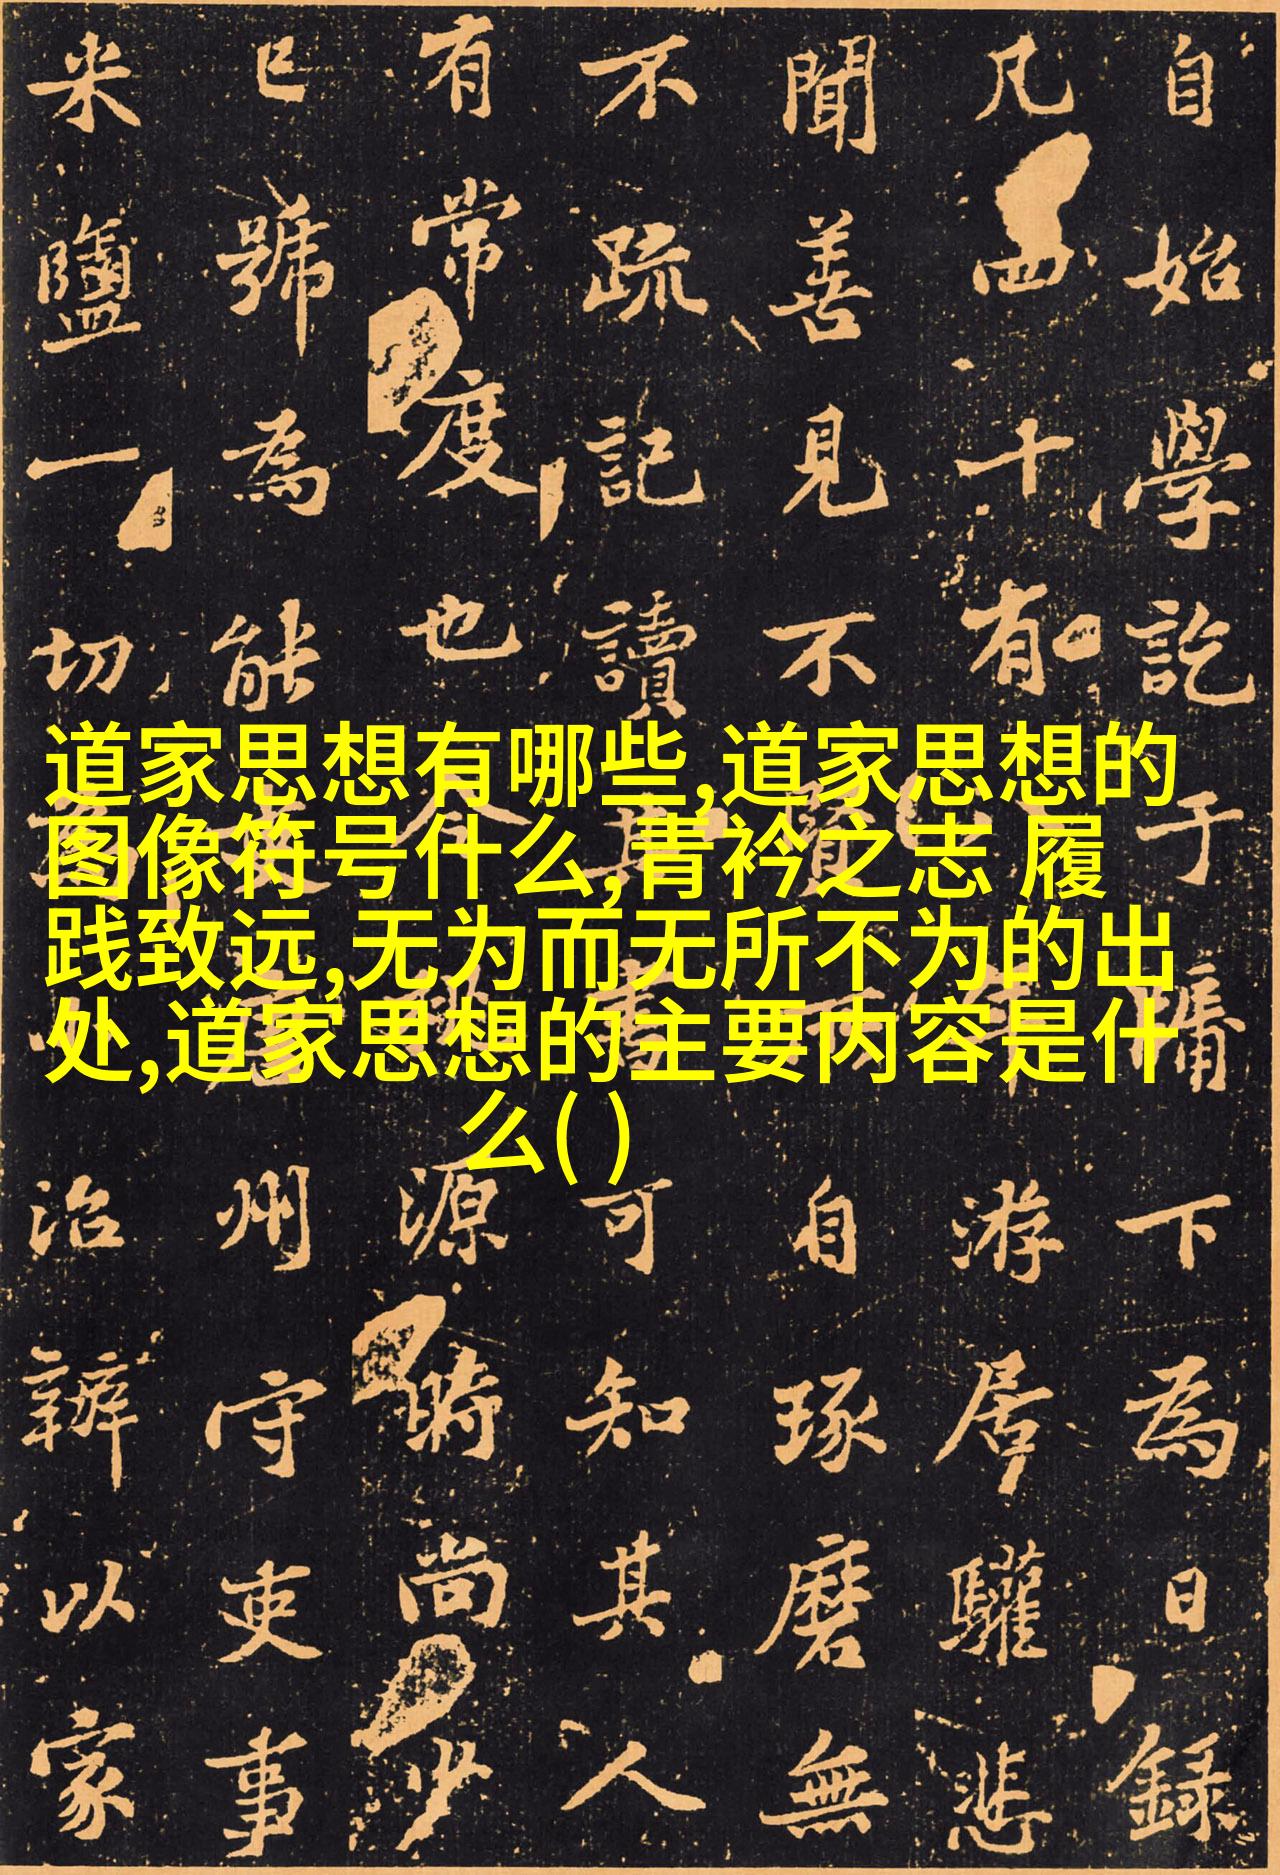 自始學訖于牖下為日錄
凡四十有年游居驩悲
聞善見不賢自琢磨無
不疏記讀其書可知其人
有常度也令源時尚少
已號為能州守吏事
米鹽一切治辨以家
道家思想有哪些,道家思想的
图像符号什么,青衿之志 履
践致远,无为而无所不为的出
处,道家思想的主要内容是什
么( )